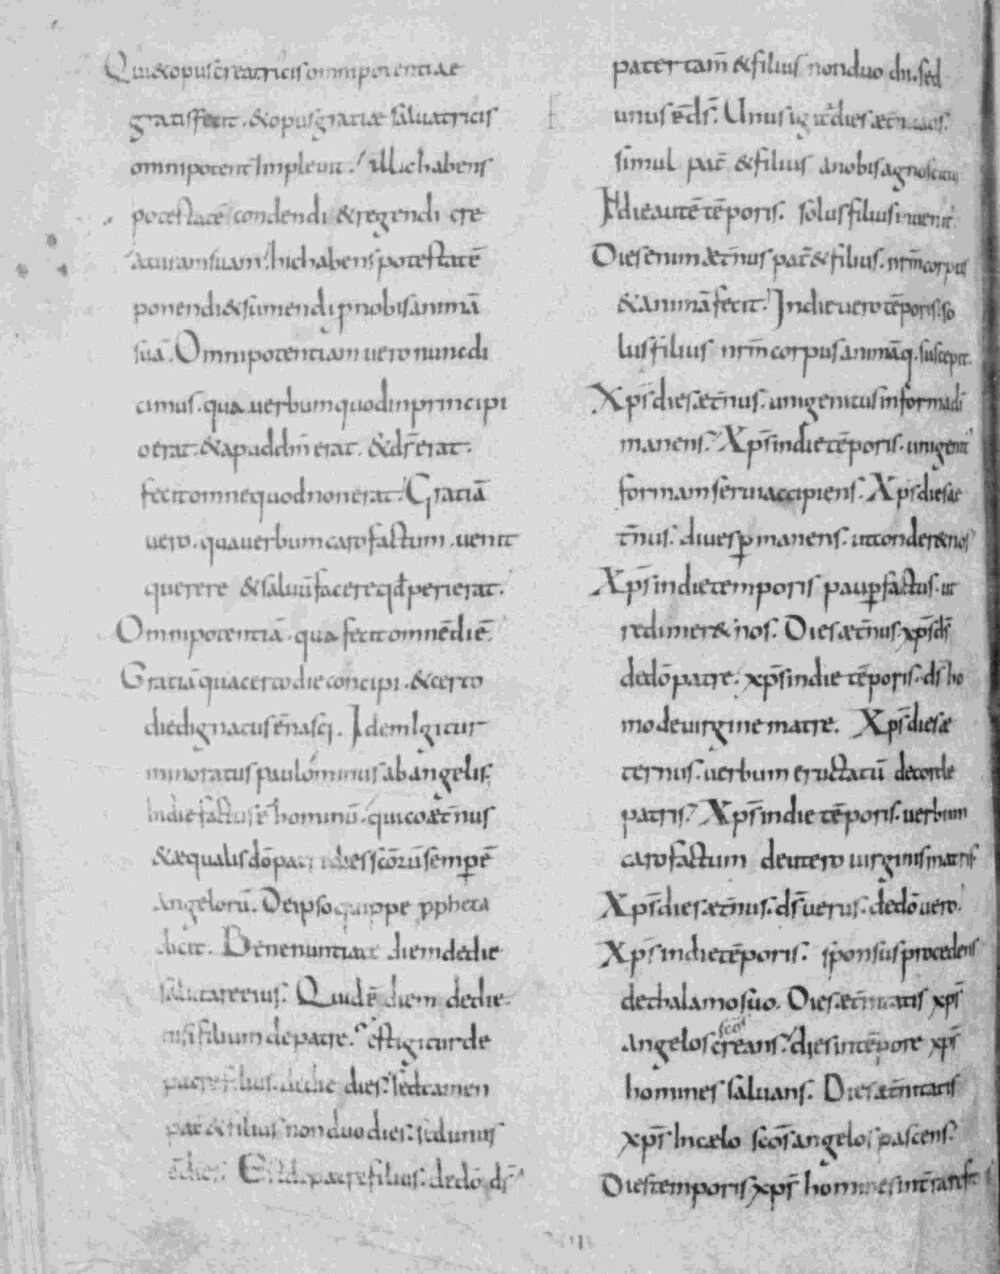 Qui & opus creatricis omnipotentiae
gratis fecit. & opus gratiae saluatricis
omnipotent̄ Impleuit. illic habens
potestatē condendi & regendi cre
aturam suam. hic habens potestatē
ponendi & sumendi ꝓ nobis animā
suā. Omnipotentiam uero nunc di
cimus. qua uerbum quod in principi
o erat. & apud dm̄ erat. & ds̄ erat.
fecit omne quod non erat. Gratiā
uero. qua uerbum caro factum. uenit
querere & saluū facere qd̄ perierat.
Omnipotentiā. qua fecit omnē diē.
Gratiā qua certo die concipi. & certo
die dignatus ē nasci. Idem Igitur
minoratus paulominus ab angelis.
In die factus ē hominū. qui coaet̄nus
& aequalis dō patri dies scōrū semꝑ ē
angelorū. De ipso quippe ꝓpheta
dicit. Bene nuntiate diem de die
salutare eius. Quid ē diem de die.
nisi filium de patre. Est igitur de
patre filius. de die dies. sed tamen
pat̄ & filius non duo dies. sed unus
ē dies. Est de patre filius. de dō ds̄
pater tam̄ & filius non duo dii. sed
unus ē ds̄. Unus igit̄ dies aet̄nitatis.
simul pat̄ & filius a nobis agnoscitur
In die autē tēporis. solus filius inuenit̄.
Dies enim aet̄nus pat̄ & filius. nrm̄ corpus
& animā fecit. In die uero tēporis. so
lus filius nrm̄ corpus animāq. suscepit.
Xps̄ dies aet̄nus. unigenitus in forma dī
manens. Xps̄ in die tēporis. unigenit̄
formam serui accipiens. Xps̄ dies ae
t̄nus. diues ꝑmanens. ut conder& nos
Xps̄ in die temporis pauꝑ factus. ut
redimer& nos. Dies aet̄nus. xps̄ ds̄
de dō patre. xps̄ in die tēporis. ds̄ ho
mo de uirgine matre. Xps̄ dies ae
ternus. uerbum eructatū de corde
patris. Xps̄ in die tēporis. uerbum
caro factum de utero uirginis matris
Xps̄ dies aet̄nus. ds̄ uerus. de dō uero.
Xps̄ in die tēporis. sponsus procedens
de thalamo suo. Dies aet̄nitatis xps̄
scōs
angelos creans. dies in tēpore xps̄
homines saluans. Dies aet̄nitatis
xps̄ In caelo scōs angelos pascens.
Dies temporis xps̄ homines int̄ra